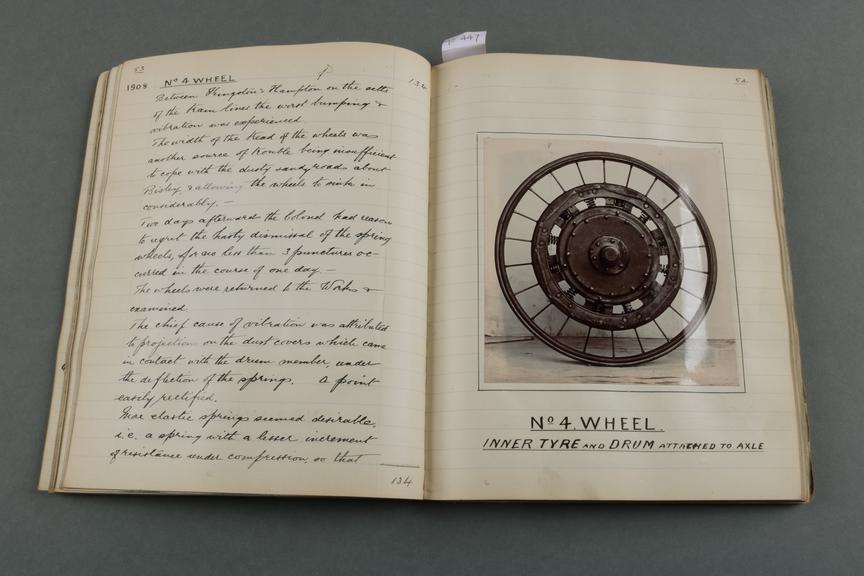 53
1908 No 4 WHEEL
Between Kingston & Hampton on the setts
of the tram lines the worst bumping &
vibration was experienced
The width of the tread of the wheels was
another source of trouble being insufficient
to cope with the dusty sandy roads about
Bisley & allowing the wheels to sink in
considerably. —
Two days afterwards the Colonel had reason
to regret the hasty dismissal of the spring
wheels, for no less than 3 punctures oc-
curred in the course of one day —
The wheels were returned to the Works &
examined.
The chief cause of vibration was attributed
to projection on the dust covers which came
in contact with the drum member, under
the deflection of the springs. A point
easily rectified.
More elastic springs seemed desirable,
i.e. a spring with a lesser increment
of resistance under compression, so that
134
No 447
54
No 4. WHEEL.
INNER TYRE AND DRUM ATTACHED TO AXLE